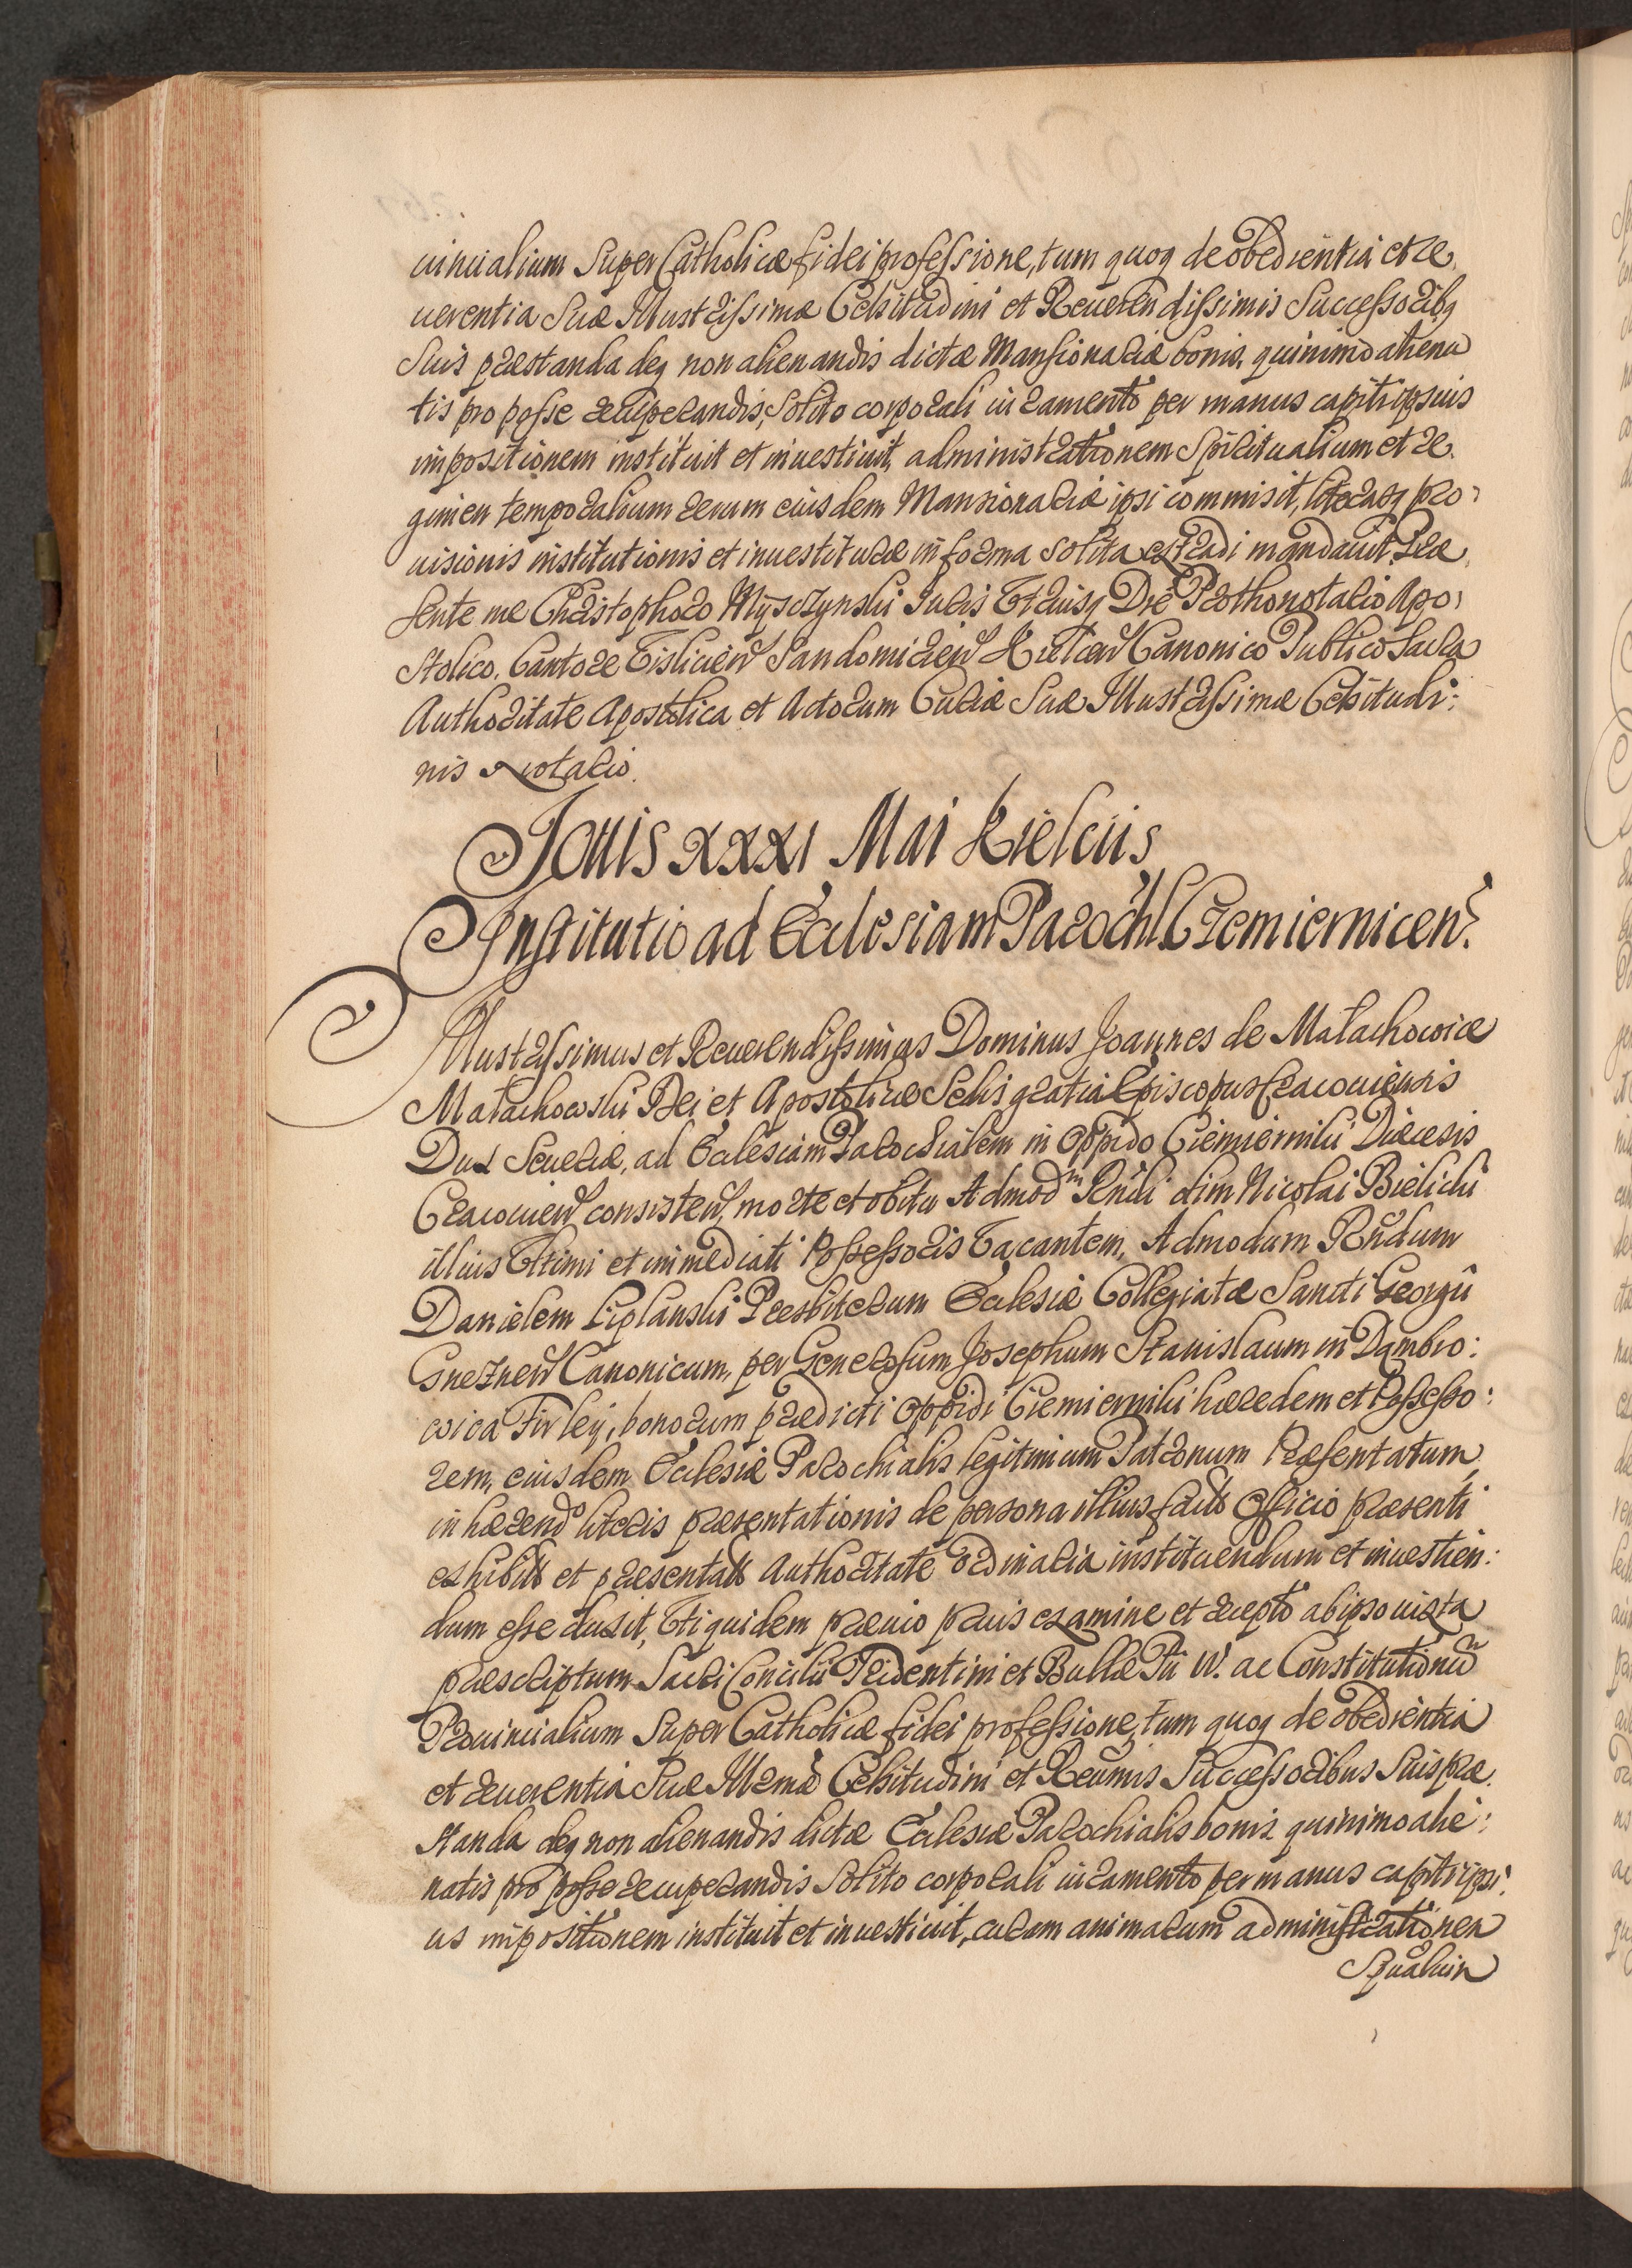 uincialium Super Catholicæ fidei professione, tum quoq de obedientia et re
uerentia Suæ Illustrissimæ Celsitudini et Reuerendissimis Successoribq
Suis præstanda deq non alienandis dictæ Mansionariæ bonis, quinimo aliena
tis pro posse recuperandis, Solito corporali iuramento per manus capiti ipsius
impositionem instituit et inuestiuit, administrationem Spiritualium et re
gimen temporalium rerum eiusdem Mansionariæ ipsi commisit, literasq pro
uisionis institutionis et inuestituræ in forma solita extradi mandauit. Præ
sente me Christophoro Mysczynski Iuris Vtriusq Dre Prothonotario Apo
stolico, Cantore Visliciensis Sandomirien Kielcen Canonico Publico Sacra
Authoritate Apostolica et Actorum Curiæ Suæ Illustrissimæ Celsitudi:
nis Notario.
Jouis XXXI Mai Kielciis
Institutio ad Ecclesiam Parochl Czemiernicen.
Illustrissimus et Reuerendissimus Dominus Joannes de Małachowice
Małachowski Dei et Apostolicæ Sedis gratia Episcopus Cracouiensis
Dux Seueriæ, ad Ecclesiam Parochialem in Oppido Ciemierniki Diæcesis
Cracouien consisten, morte et obitu Admodm Rndi olim Nicolai Bielicki
illius Vltimi et immediati Possessoris Vacantem, Admodum Rndum
Danielem Liplanski Præsbiterum Ecclesiæ Collegiatæ Sancti Georgii
Gneznen Canonicum, per Generosum Josephum Stanislaum in Dambro:
wica Firley, bonorum prædicti Oppidi Ciemierniki hæredem et Possesso:
rem, eiusdem Ecclesiæ Parochialis legitimum Patronum Præsentatum,
inhærendo literis præsentationis de persona illius factis Officio præsenti
exhibitis et præsentatis Authoritate Ordinaria instituendum et inuestien:
dum esse duxit, Vti quidem præuio prius examine et recepto ab ipso iuxta
præscriptum Sacri Concilii Tridentini et Bullæ Pii IV. ac Constitutionū
Prouincialium Super Catholicæ fidei professione, tum quoq de obedientia
et reuerentia Suæ Illrmæ Celsitudini et Reūmis Successoribus Suis præ
standa deq non alienandis dictæ Ecclesiæ Parochialis bonis, quinimo alie:
natis pro posse recuperandis Solito corporali iuramento per manus capiti ipsi
us impositionem instituit et inuestiuit, curam animarum administrationem
Spualium